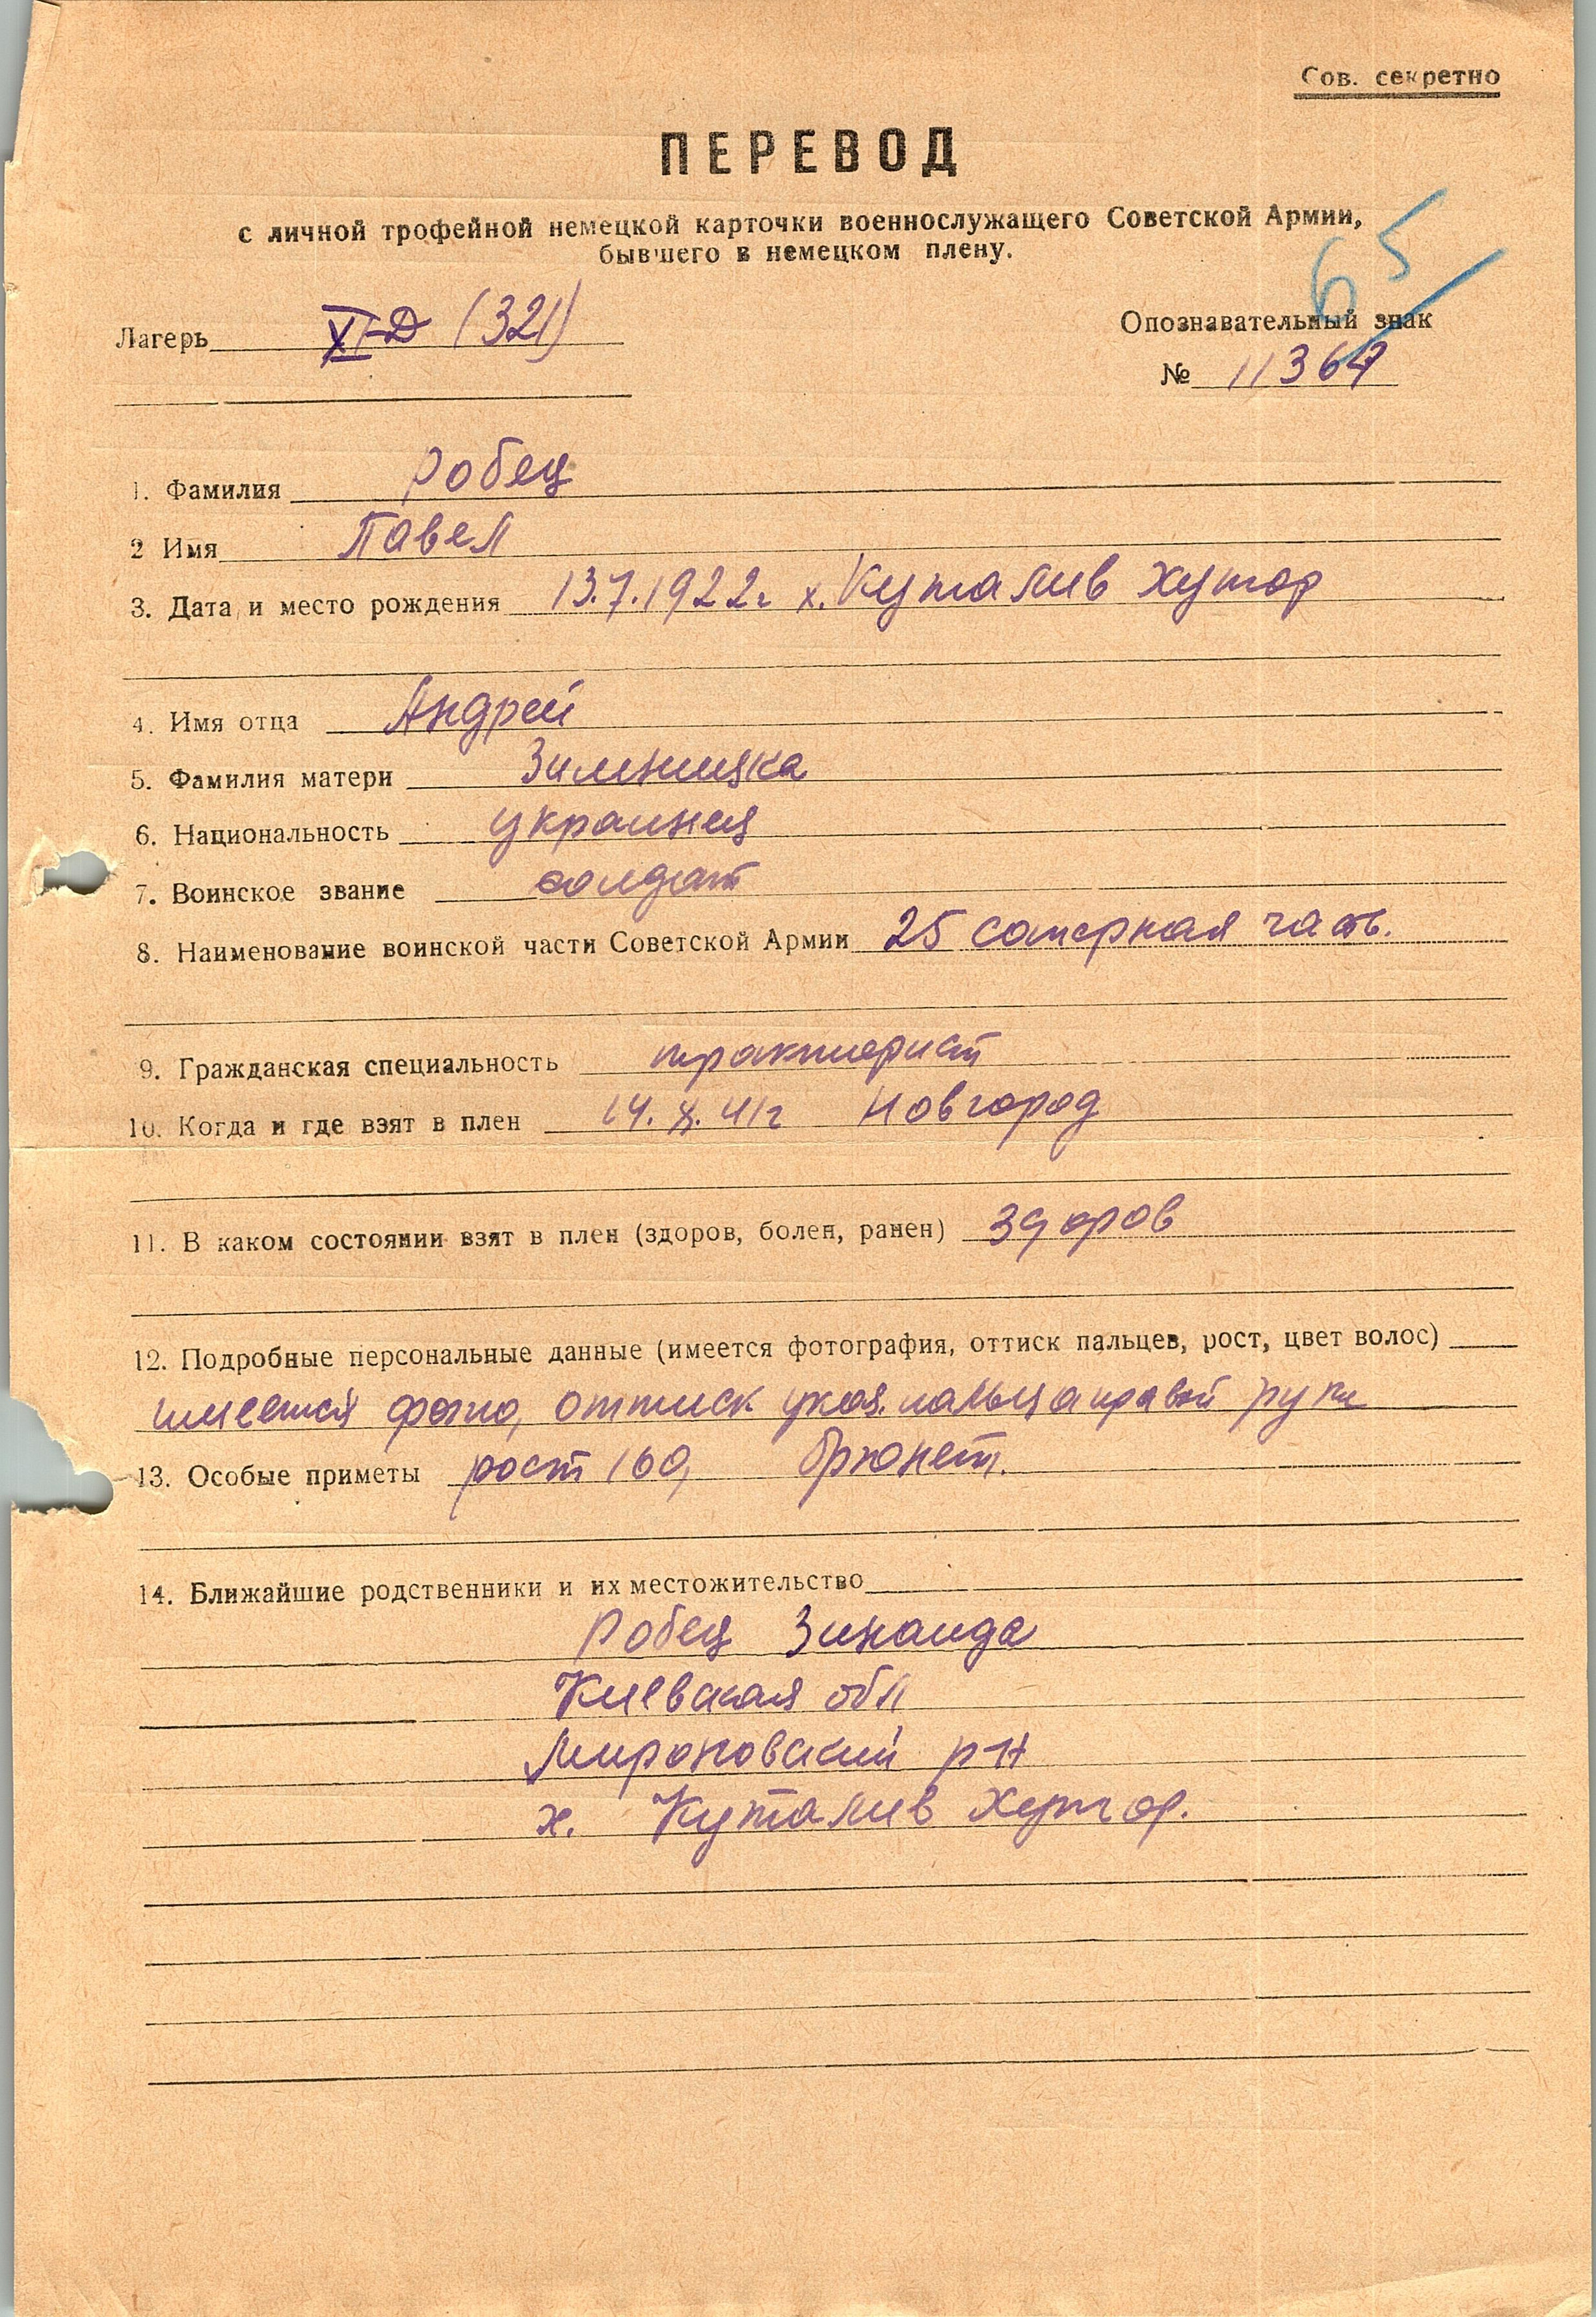 Сов. секретно
ПЕРЕВОД
с личной трофейной немецкой карточки военнослужащего Советской Армии,
бывшего в немецком плену.
65
Лагерь XI-D (321)
Опознавательный знак
№ 11367
1. Фамилия Робец
2 Имя Павел
3. Дата и место рождения 13.7.1922г х. Куталив хутор
4. Имя отца Андрей
5. Фамилия матери Зимницка
6. Национальность украинец
7. Воинское звание солдат
8. Наименование воинской части Советской Армии 25 саперная часть.
9. Гражданская специальность тракторист
10. Когда и где взят в плен 14.X.41г Новгород
11. В каком состоянии взят в плен (здоров, болен, ранен) здоров
12. Подробные персональные данные (имеется фотография, оттиск пальцев, рост, цвет волос)
имеется фото, оттиск указ. пальца правой руки
13. Особые приметы рост 160, брюнет.
14. Ближайшие родственники и их местожительство
Робец Зинаида
Киевская обл
Мироновский р-н
х. Куталив хутор.